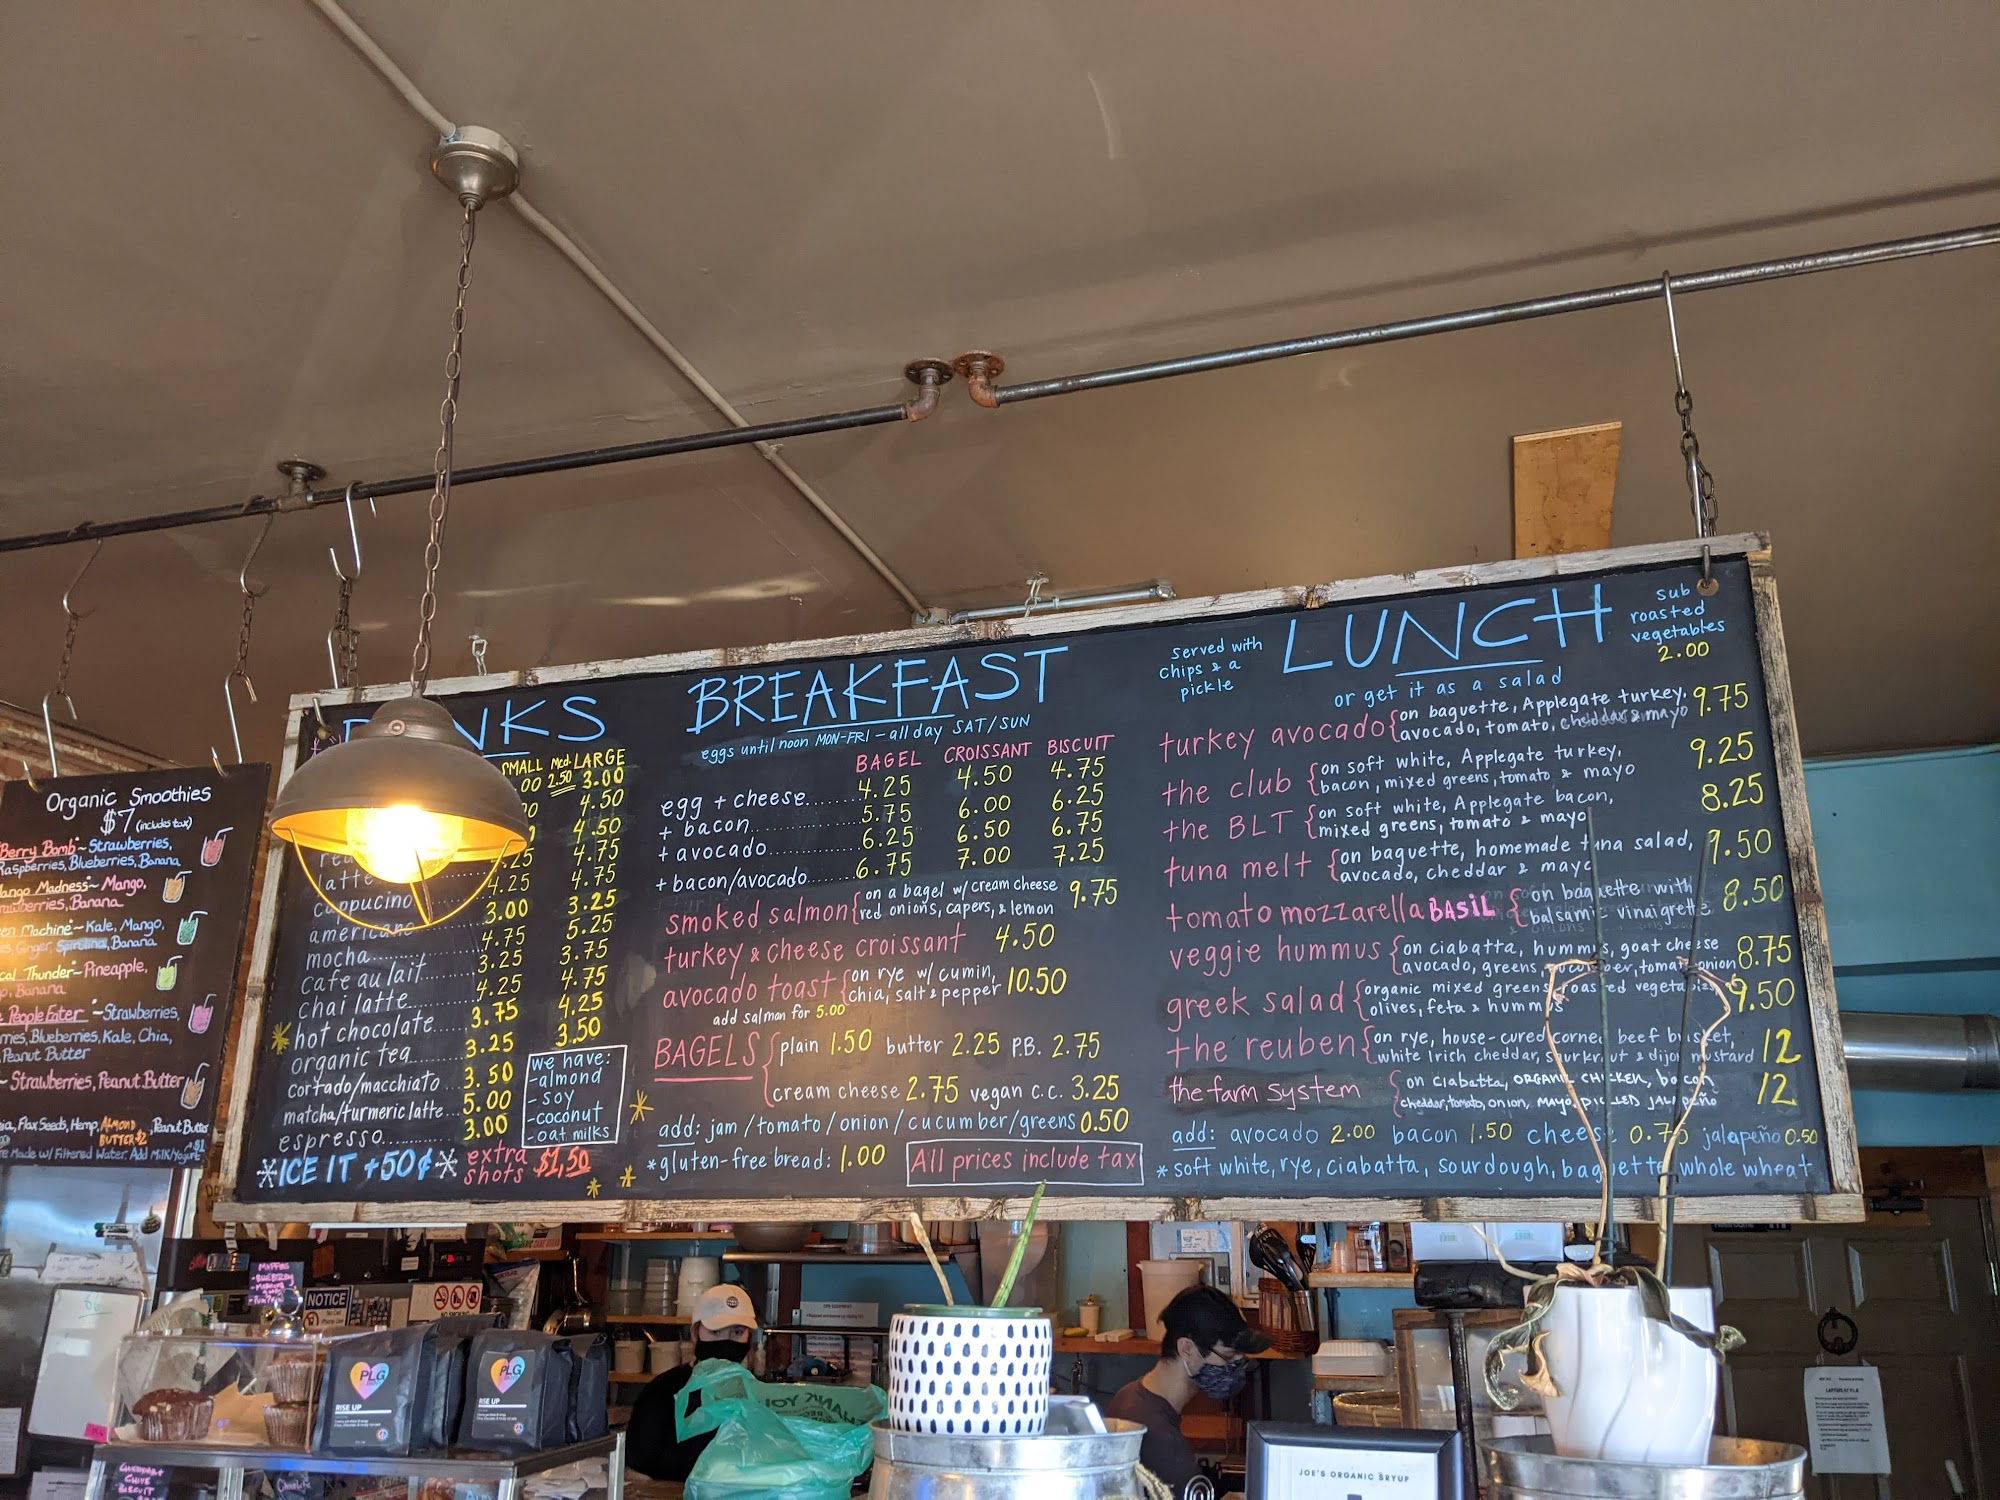 Organic Smoothies
$7 (includes tax)
Berry Bomb" ~ Strawberries,
Raspberries, Blueberries, Banana
Madness" ~ Mango,
Banana
Machine" ~ Kale, Mango,
Ginger, Spirulina, Banana
Thunder" ~ Pineapple,
Banana
People Eater" ~ Strawberries,
Blueberries, Kale, Chia,
Peanut Butter
~ Strawberries, Peanut Butter
Flax Seeds, Hemp, ALMOND BUTTER $2, Peanut Butter
Made w/ Filtered Water. Add Milk/Yogurt $1
NKS
SMALL Med. LARGE
2.50 3.00
4.50
4.50
4.75
latte 4.25 4.75
cappucino 4.25 4.75
americano 3.00 3.25
mocha 4.75 5.25
cafe au lait 3.25 3.75
chai latte 4.25 4.75
hot chocolate 3.75 4.25
organic tea 3.25 3.50
cortado/macchiato 3.50
matcha/turmeric latte 5.00
espresso 3.00
we have:
-almond
-soy
-coconut
-oat milks
ICE IT +50¢
extra shots $1.50
BREAKFAST
eggs until noon MON-FRI - all day SAT/SUN
BAGEL CROISSANT BISCUIT
egg + cheese 4.25 4.50 4.75
+ bacon 5.75 6.00 6.25
+ avocado 6.25 6.50 6.75
+ bacon/avocado 6.75 7.00 7.25
smoked salmon { on a bagel w/ cream cheese 9.75
red onions, capers, & lemon
turkey & cheese croissant 4.50
avocado toast { on rye w/ cumin, 10.50
chia, salt & pepper
add salmon for 5.00
BAGELS { plain 1.50 butter 2.25 P.B. 2.75
cream cheese 2.75 vegan c.c. 3.25
add: jam / tomato / onion / cucumber / greens 0.50
*gluten-free bread: 1.00
All prices include tax
served with
chips & a
pickle
LUNCH
or get it as a salad
sub
roasted
vegetables
2.00
turkey avocado { on baguette, Applegate turkey, 9.75
avocado, tomato, cheddar & mayo
the club { on soft white, Applegate turkey, 9.25
bacon, mixed greens, tomato & mayo
the BLT { on soft white, Applegate bacon, 8.25
mixed greens, tomato & mayo
tuna melt { on baguette, homemade tuna salad, 9.50
avocado, cheddar & mayo
tomato mozzarella BASIL { on baguette with 8.50
balsamic vinaigrette
veggie hummus { on ciabatta, hummus, goat cheese 8.75
avocado, greens, cucumber, tomato, onion
greek salad { organic mixed greens, roasted vegetables, 9.50
olives, feta & hummus
the reuben { on rye, house-cured corned beef brisket, 12
white Irish cheddar, sourkraut & dijon mustard
the farm system { on ciabatta, ORGANIC CHICKEN, bacon 12
cheddar, tomato, onion, MAYO, PICKLED JALAPEÑO
add: avocado 2.00 bacon 1.50 cheese 0.75 jalapeño 0.50
*soft white, rye, ciabatta, sourdough, baguette, whole wheat
MUFFINS
NOTICE
PLG
RISE UP
PLG
RISE UP
CHEDDAR &
CHIVE
BISCUIT
THANK YOU
JOE'S ORGANIC BRYUP